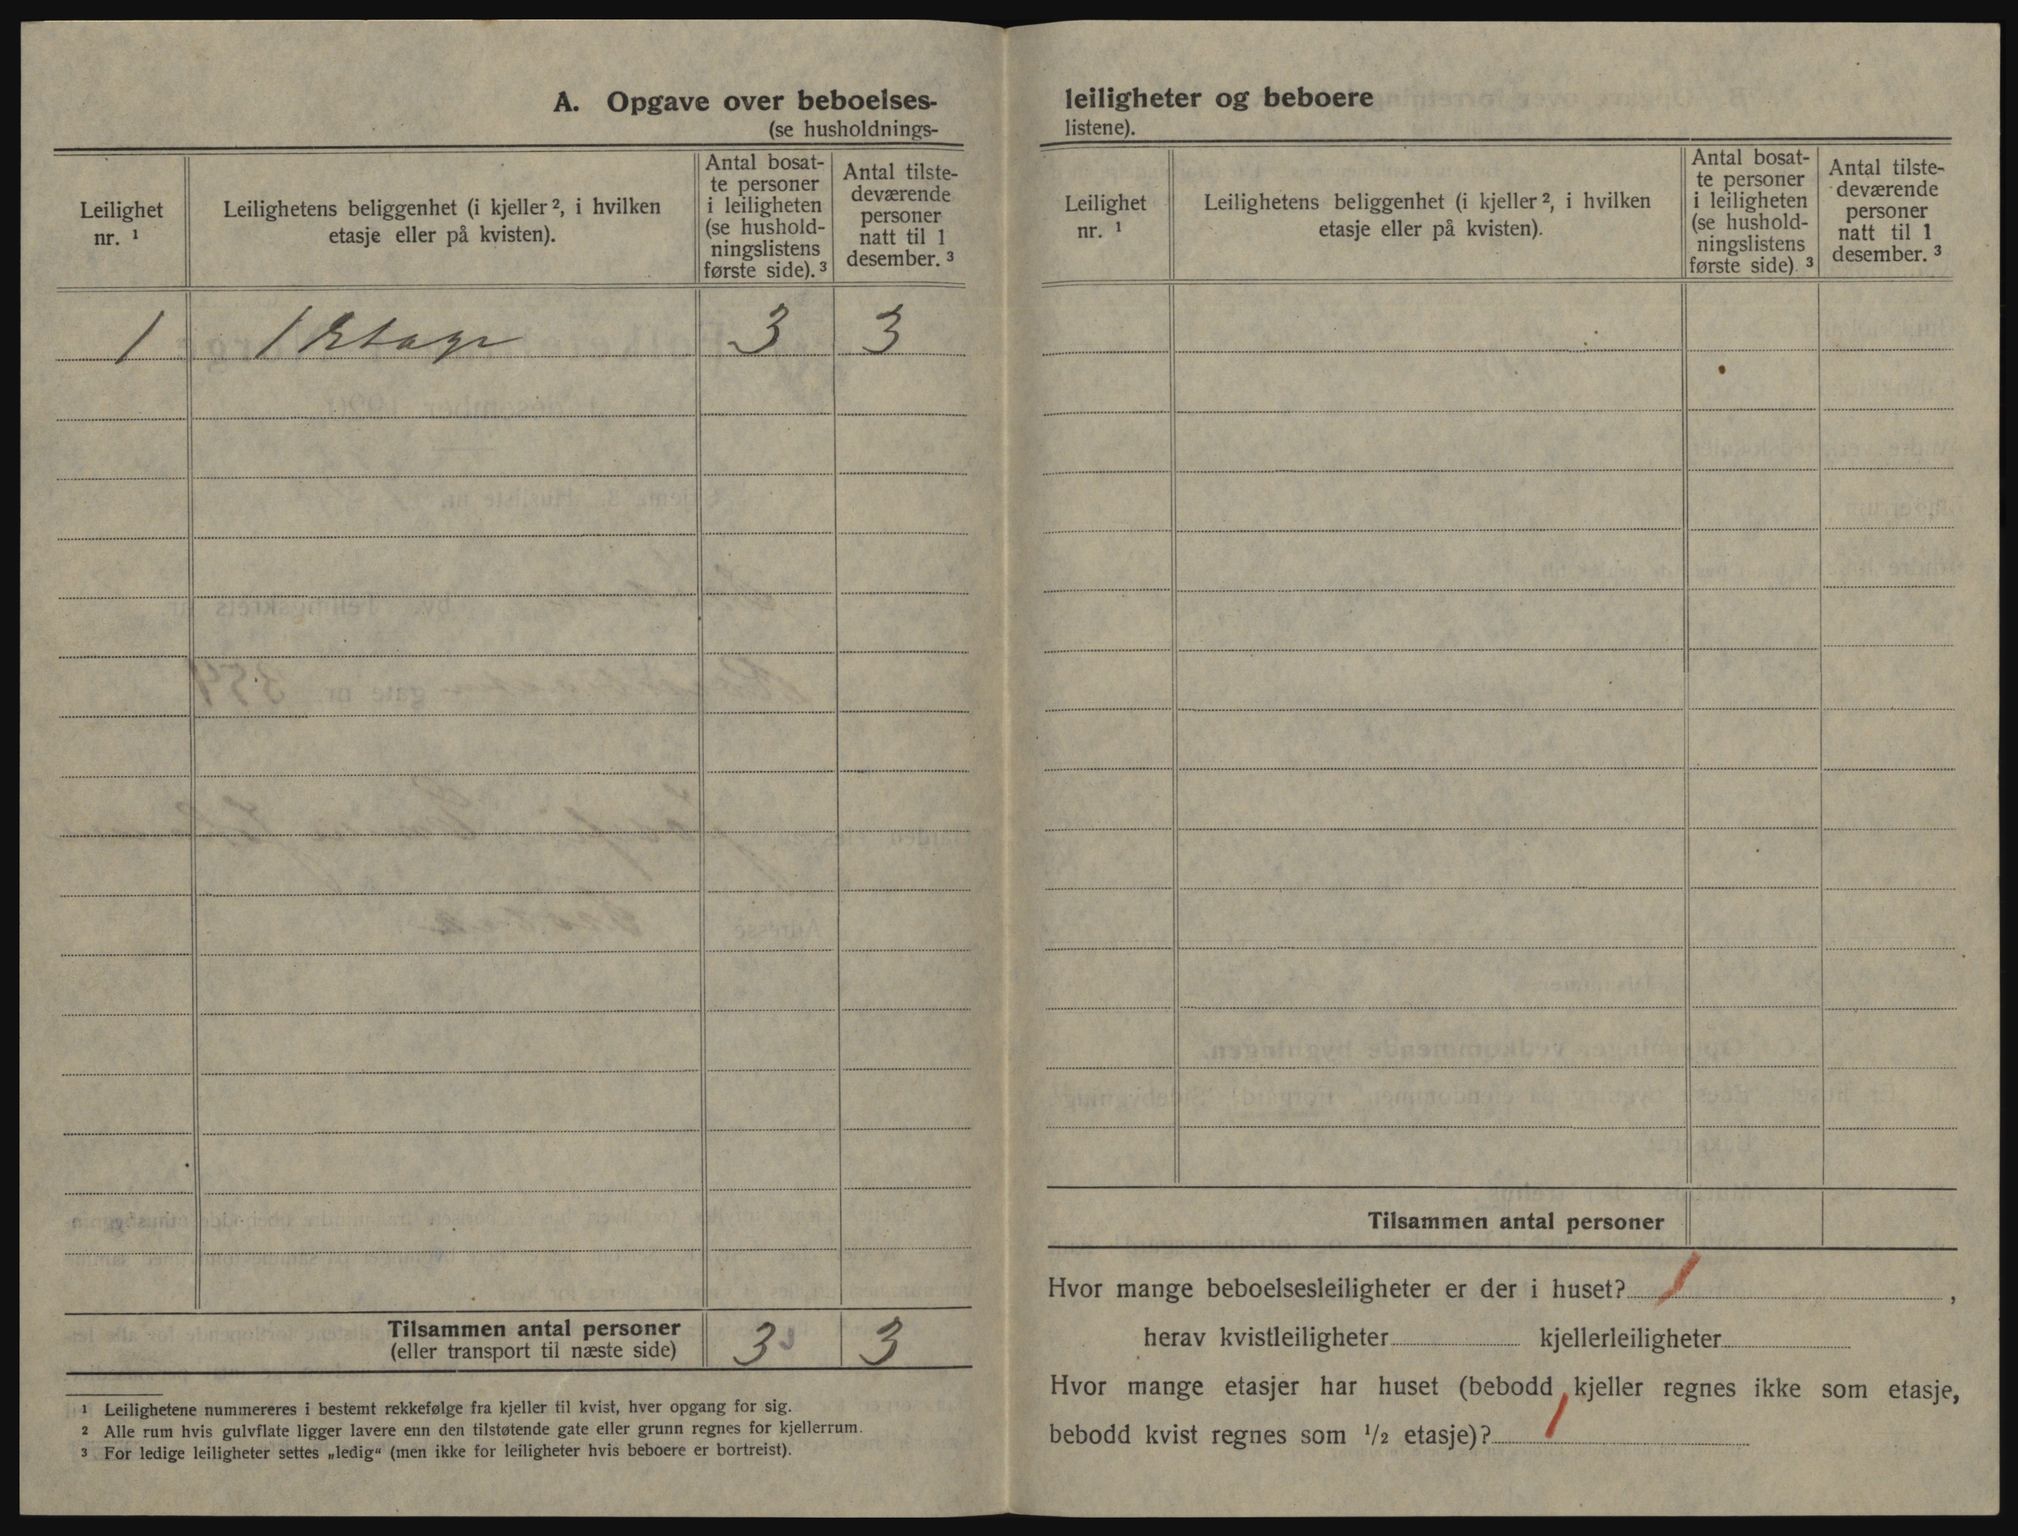 A. Opgave over beboelses-
(se husholdnings-
Leilighet
nr. ¹
Leilighetens beliggenhet (i kjeller ², i hvilken
etasje eller på kvisten).
Antal bosat-
te personer
i leiligheten
(se hushold-
ningslistens
første side). ³
Antal tilste-
deværende
personer
natt til 1
desember. ³
1 1 Etage 3 3
Tilsammen antal personer
(eller transport til næste side)
3 3
¹ Leilighetene nummereres i bestemt rekkefølge fra kjeller til kvist, hver opgang for sig.
² Alle rum hvis gulvflate ligger lavere enn den tilstøtende gate eller grunn regnes for kjellerrum.
³ For ledige leiligheter settes „ledig“ (men ikke for leiligheter hvis beboere er bortreist).
leiligheter og beboere
listene).
Leilighet
nr. ¹
Leilighetens beliggenhet (i kjeller ², i hvilken
etasje eller på kvisten).
Antal bosat-
te personer
i leiligheten
(se hushold-
ningslistens
første side) ³
Antal tilste-
deværende
personer
natt til 1
desember. ³
Tilsammen antal personer
Hvor mange beboelsesleiligheter er der i huset? 1 ,
herav kvistleiligheter kjellerleiligheter
Hvor mange etasjer har huset (bebodd kjeller regnes ikke som etasje,
bebodd kvist regnes som ¹/₂ etasje)? 1